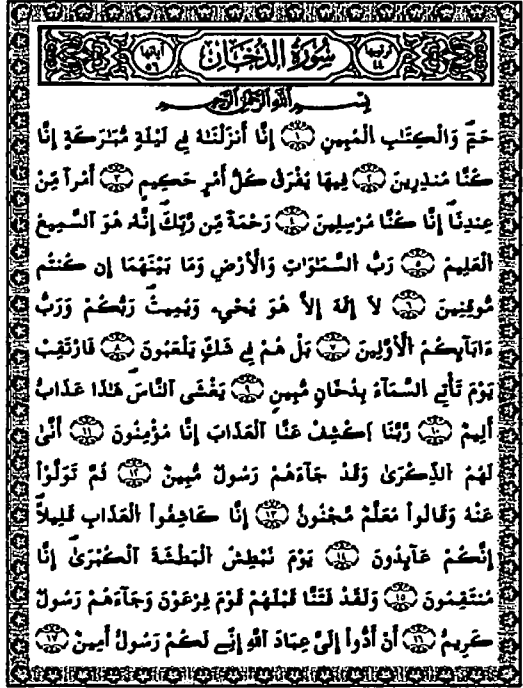 ترتيبها ٤٤ سُورَةُ الدُّخَانِ آياتها ٥٦
بِسْمِ اللَّهِ الرَّحْمَٰنِ الرَّحِيمِ
حَمِٓ وَالْكِتَٰبِ الْمُبِينِ ١ إِنَّا أَنزَلْنَٰهُ فِي لَيْلَةٍ مُّبَٰرَكَةٍ إِنَّا
كُنَّا مُنذِرِينَ ٢ فِيهَا يُفْرَقُ كُلُّ أَمْرٍ حَكِيمٍ ٣ أَمْراً مِّنْ
عِندِنَا إِنَّا كُنَّا مُرْسِلِينَ ٤ رَحْمَةً مِّن رَّبِّكَ إِنَّهُ هُوَ السَّمِيعُ
الْعَلِيمُ ٥ رَبُّ السَّمَٰوَٰتِ وَالْأَرْضِ وَمَا بَيْنَهُمَا إِن كُنتُم
مُّوقِنِينَ ٦ لَا إِلَٰهَ إِلَّا هُوَ يُحْيِۦ وَيُمِيتُ رَبُّكُمْ وَرَبُّ
ءَابَآئِكُمُ الْأَوَّلِينَ ٧ بَلْ هُمْ فِي شَكٍّ يَلْعَبُونَ ٨ فَارْتَقِبْ
يَوْمَ تَأْتِي السَّمَآءُ بِدُخَانٍ مُّبِينٍ ٩ يَغْشَى النَّاسَ هَٰذَا عَذَابٌ
أَلِيمٌ ١٠ رَّبَّنَا اَكْشِفْ عَنَّا الْعَذَابَ إِنَّا مُؤْمِنُونَ ١١ أَنَّىٰ
لَهُمُ الذِّكْرَىٰ وَقَدْ جَآءَهُمْ رَسُولٌ مُّبِينٌ ١٢ ثُمَّ تَوَلَّوْاْ
عَنْهُ وَقَالُواْ مُعَلَّمٌ مَّجْنُونٌ ١٣ إِنَّا كَاشِفُواْ الْعَذَابِ قَلِيلاً
إِنَّكُمْ عَآئِدُونَ ١٤ يَوْمَ نَبْطِشُ الْبَطْشَةَ الْكُبْرَىٰ إِنَّا
مُنتَقِمُونَ ١٥ وَلَقَدْ فَتَنَّا قَبْلَهُمْ قَوْمَ فِرْعَوْنَ وَجَآءَهُمْ رَسُولٌ
كَرِيمٌ ١٦ أَنْ أَدُّواْ إِلَيَّ عِبَادَ اللَّهِ إِنِّي لَكُمْ رَسُولٌ أَمِينٌ ١٧